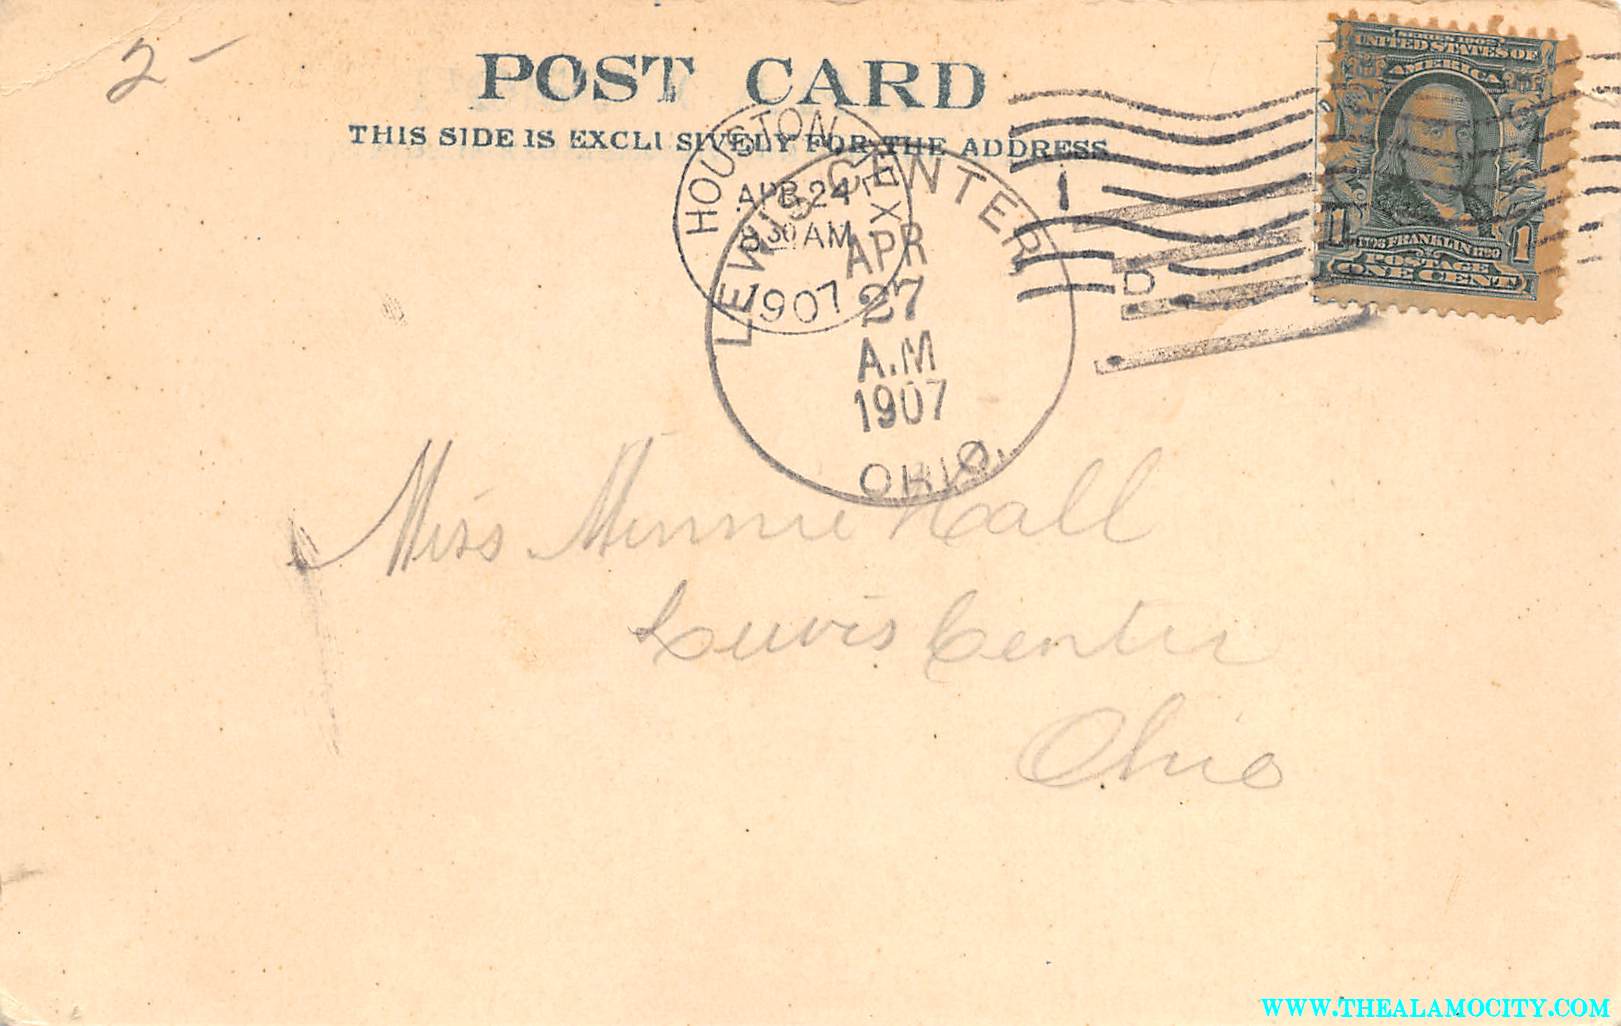 2-
POST CARD
THIS SIDE IS EXCLUSIVELY FOR THE ADDRESS
HOUSTON TEX
APR 24
8 30 AM
1907
LEWIS CENTER
APR
27
A.M
1907
OHIO.
1
D
SERIES 1902
UNITED STATES OF
AMERICA
1706 FRANKLIN 1790
1 1
POSTAGE
ONE CENT
Miss Minnie Hall
Lewis Center
Ohio
WWW.THEALAMOCITY.COM